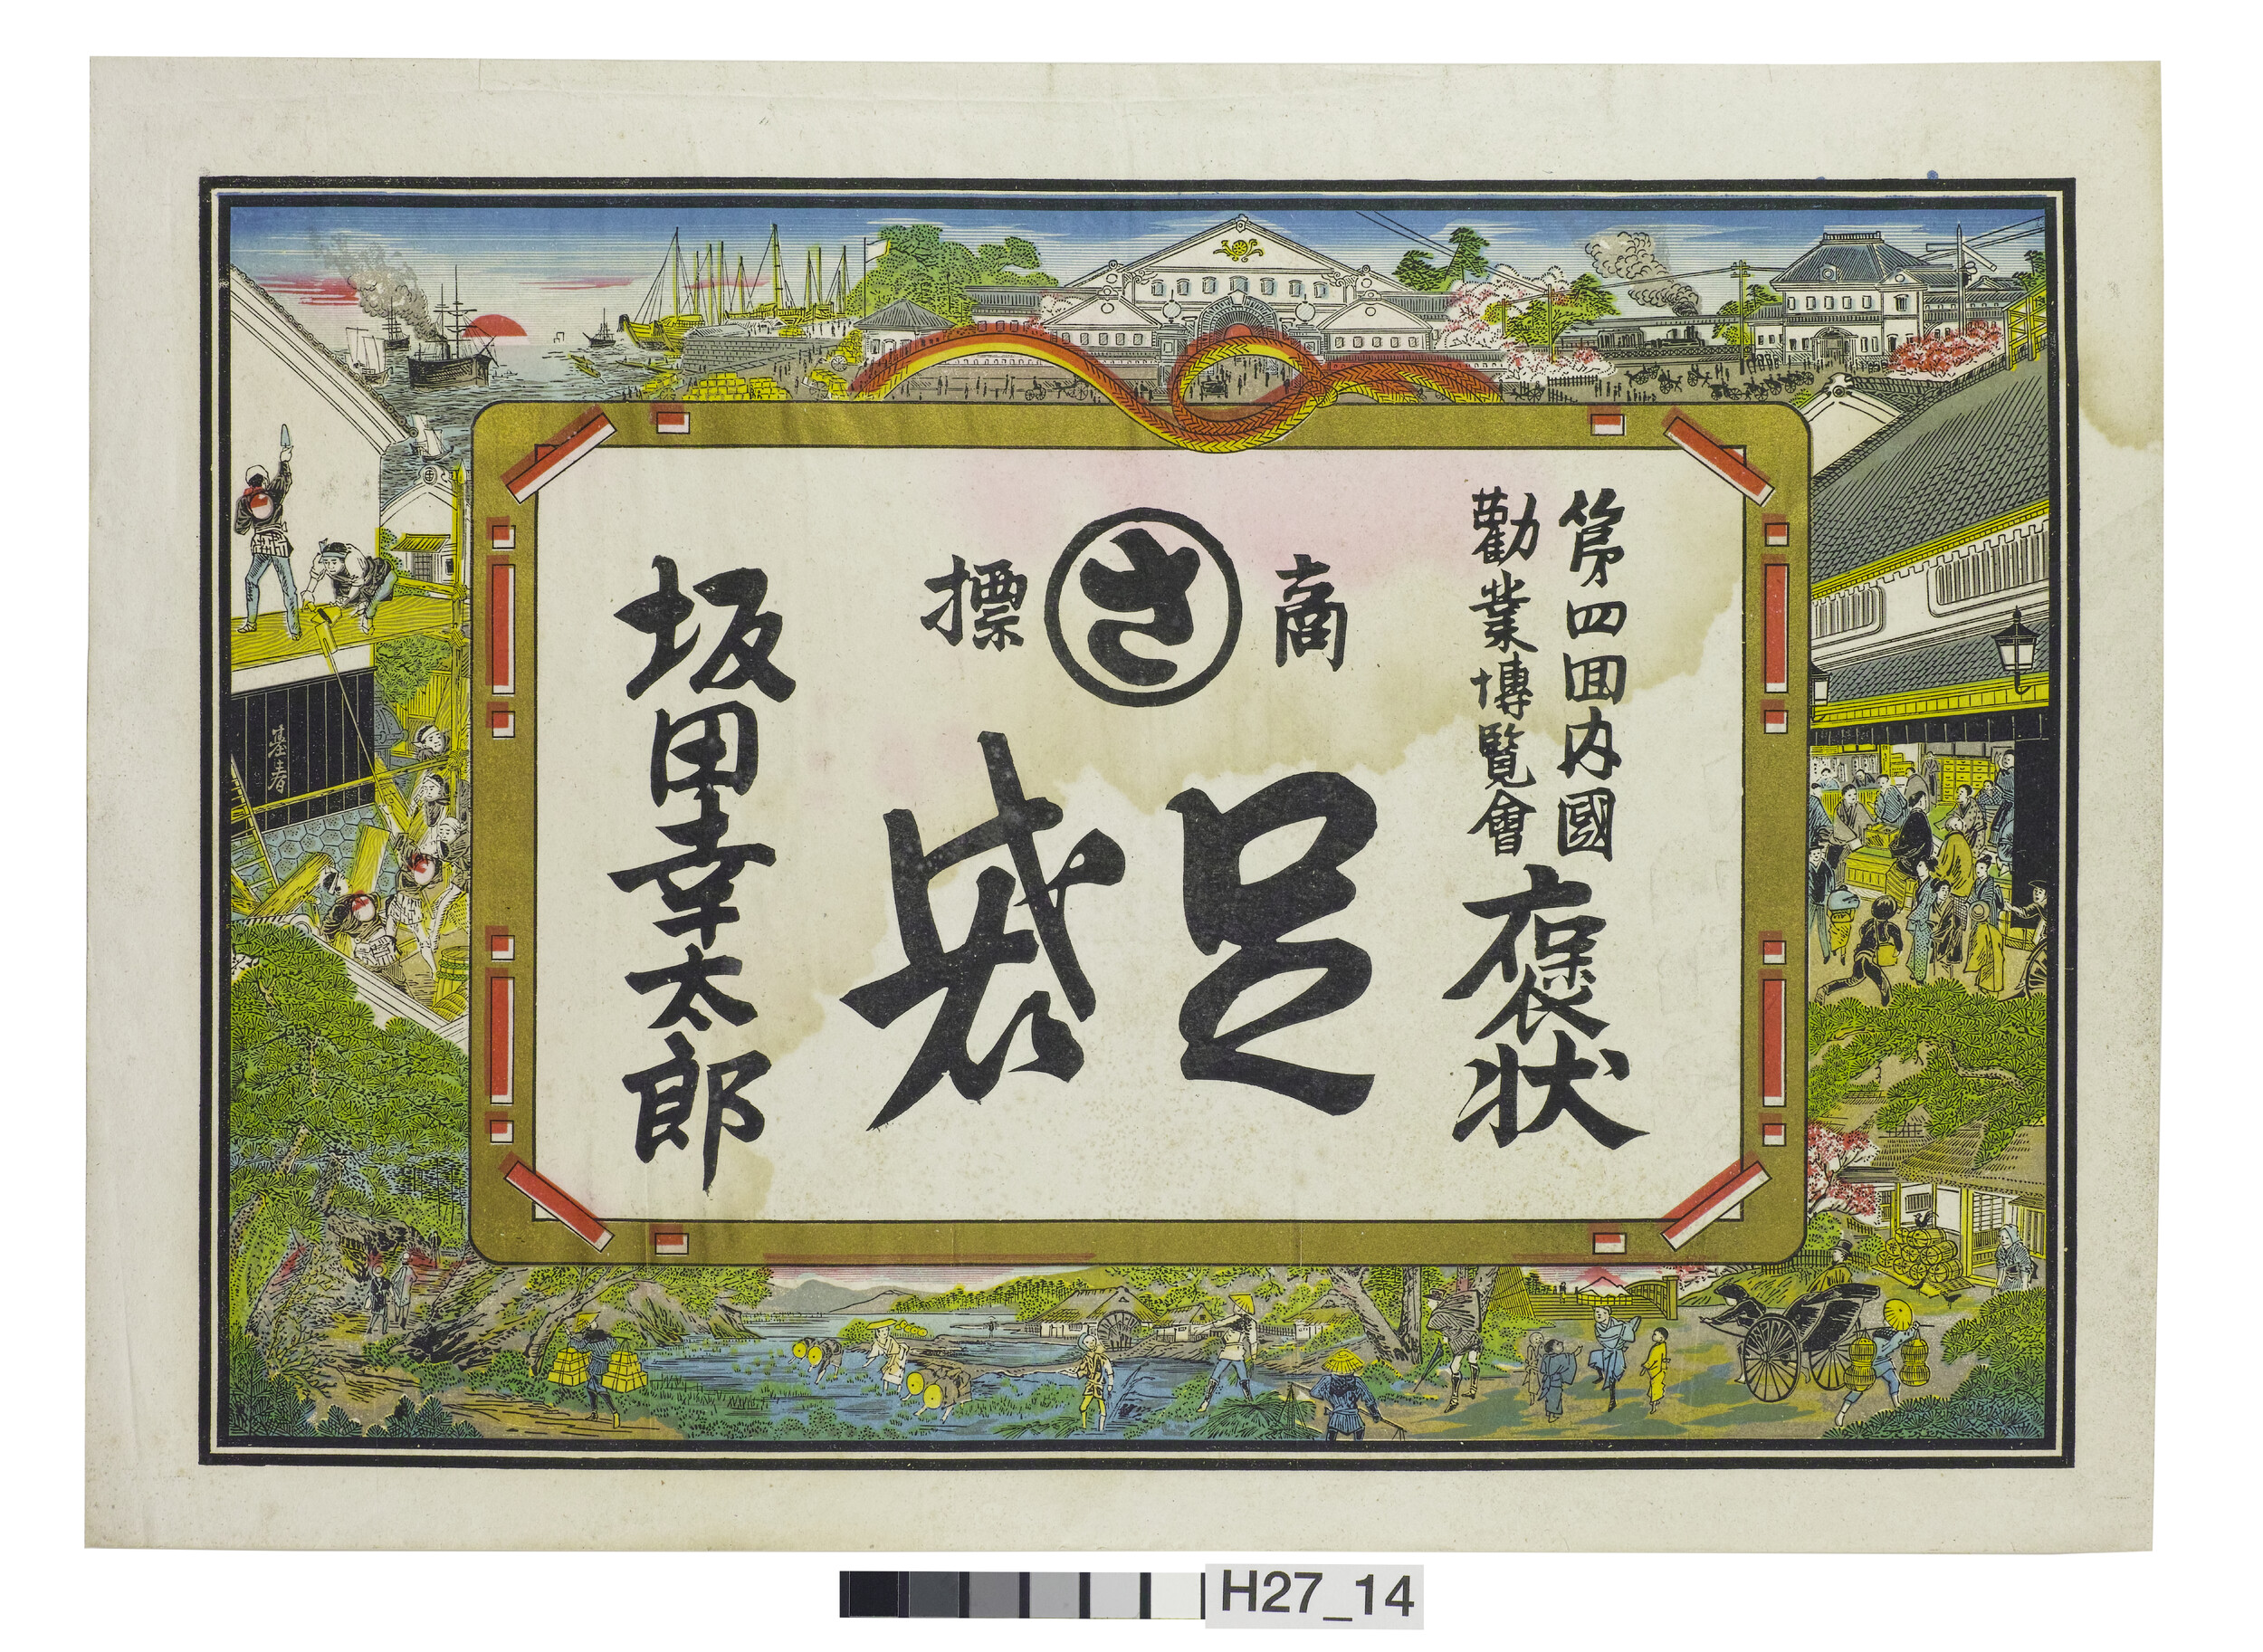 第四囬内國
勸業博覽會
褒状
商 さ 標
足袋
坂田幸太郎
基春
H27_14